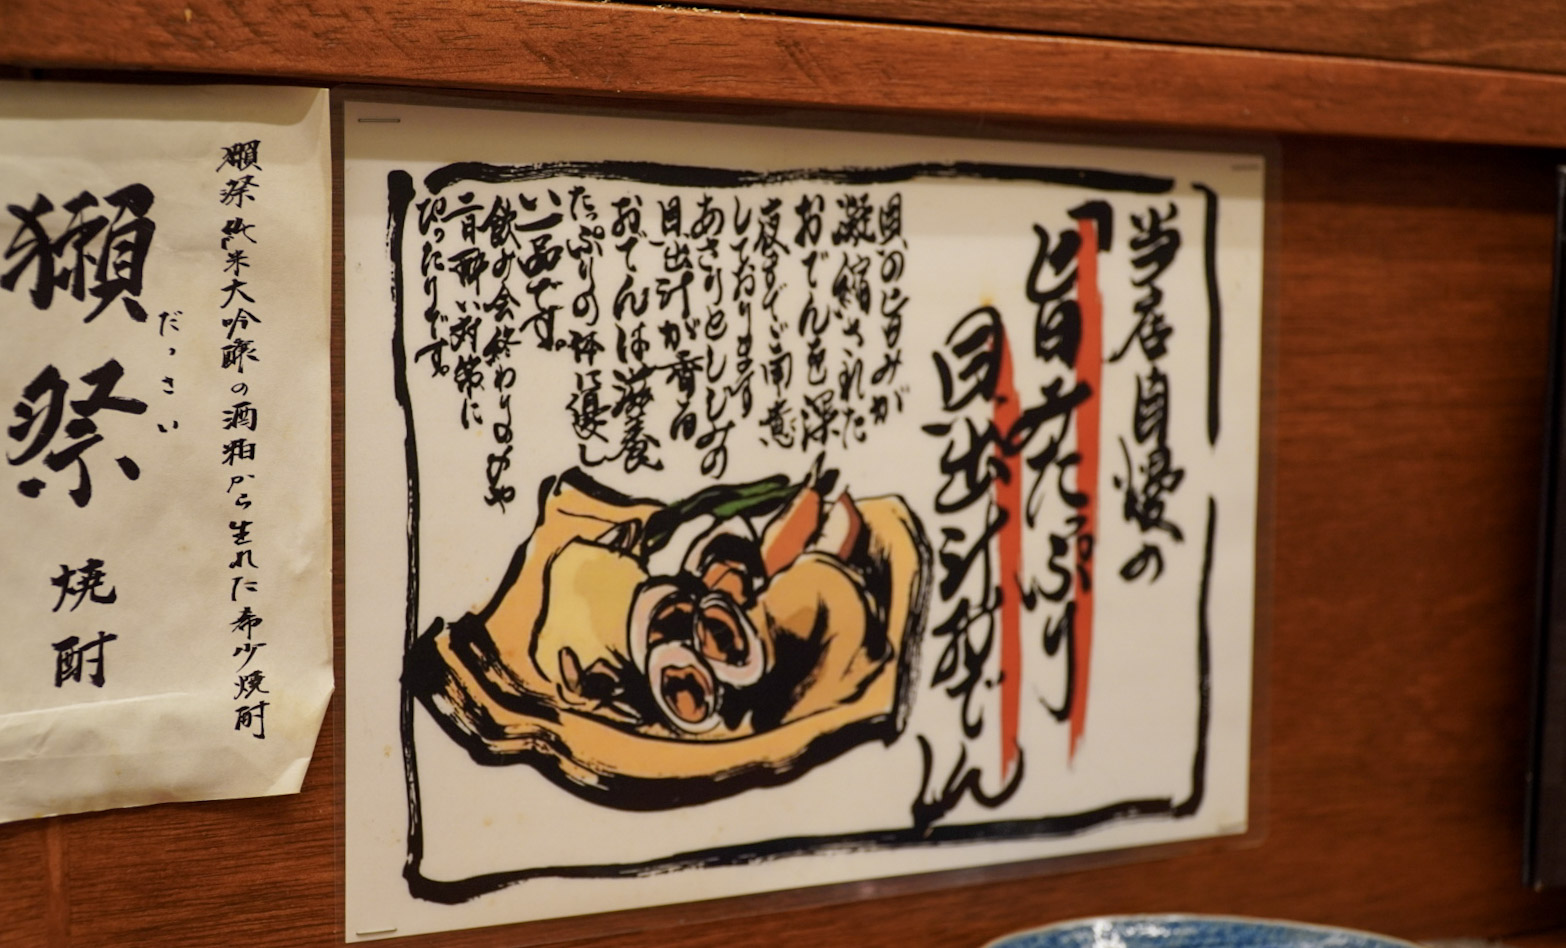 当店自慢の
「旨みたっぷり
貝出汁おでん
貝の旨みが
凝縮された
おでんを深
夜までご用意
しております
あさりとしじみの
貝出汁が香る
おでんは滋養
たっぷりの体に優し
い一品です。
飲み会終わりの〆や
二日酔い対策に
ぴったりです。
獺祭純米大吟醸の酒粕から生れた希少焼酎
だっさい
獺祭 焼酎